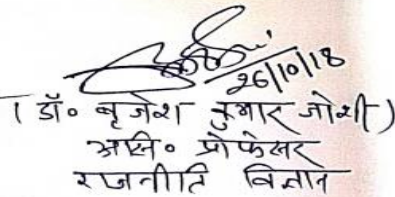 26/10/18
(डॉ० बृजेश कुमार जोशी)
असि० प्रोफेसर
राजनीति विज्ञान